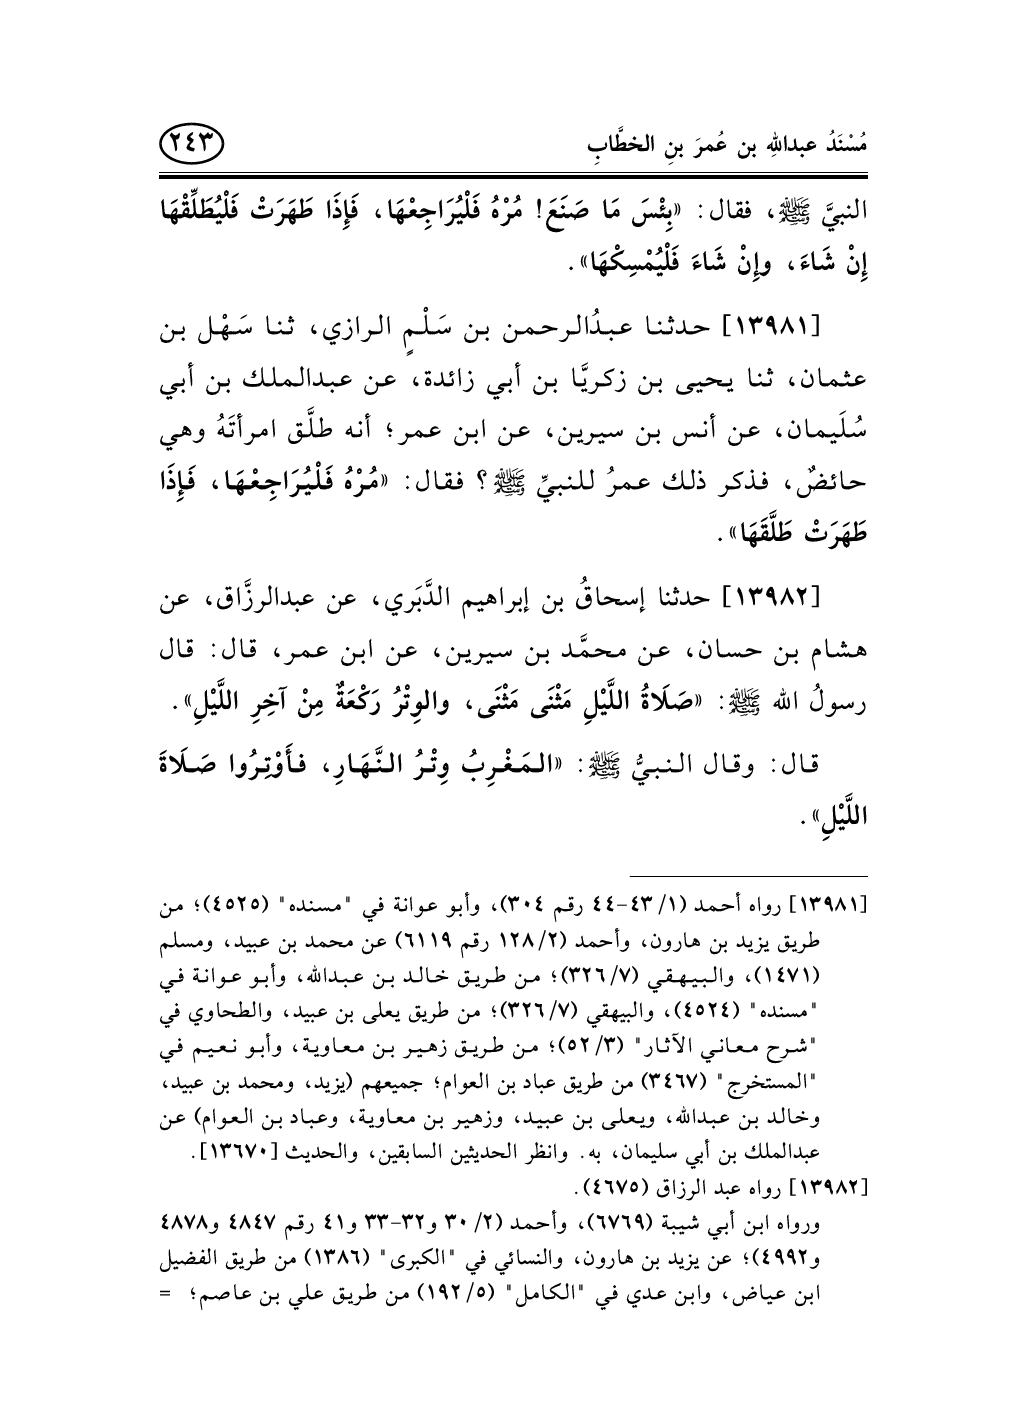 مُسْنَدُ عبداللهِ بن عُمرَ بنِ الخطَّابِ
٢٤٣
النبيَّ ﷺ، فقال: «بِئْسَ مَا صَنَعَ! مُرْهُ فَلْيُرَاجِعْهَا، فَإِذَا طَهَرَتْ فَلْيُطَلِّقْهَا
إِنْ شَاءَ، وإِنْ شَاءَ فَلْيُمْسِكْهَا».
[١٣٩٨١] حدثنا عبدُالرحمن بن سَلْمٍ الرازي، ثنا سَهْل بن
عثمان، ثنا يحيى بن زكريَّا بن أبي زائدة، عن عبدالملك بن أبي
سُلَيمان، عن أنس بن سيرين، عن ابن عمر؛ أنه طلَّق امرأتَهُ وهي
حائضٌ، فذكر ذلك عمرُ للنبيِّ ﷺ؟ فقال: «مُرْهُ فَلْيُرَاجِعْهَا، فَإِذَا
طَهَرَتْ طَلَّقَهَا».
[١٣٩٨٢] حدثنا إسحاقُ بن إبراهيم الدَّبَري، عن عبدالرزَّاق، عن
هشام بن حسان، عن محمَّد بن سيرين، عن ابن عمر، قال: قال
رسولُ الله ﷺ: «صَلَاةُ اللَّيْلِ مَثْنَى مَثْنَى، والوِتْرُ رَكْعَةٌ مِنْ آخِرِ اللَّيْلِ».
قال: وقال النبيُّ ﷺ: «المَغْرِبُ وِتْرُ النَّهَارِ، فأَوْتِرُوا صَلَاةَ
اللَّيْلِ».
[١٣٩٨١] رواه أحمد (١/ ٤٣-٤٤ رقم ٣٠٤)، وأبو عوانة في "مسنده" (٤٥٢٥)؛ من
طريق يزيد بن هارون، وأحمد (٢/ ١٢٨ رقم ٦١١٩) عن محمد بن عبيد، ومسلم
(١٤٧١)، والبيهقي (٧/ ٣٢٦)؛ من طريق خالد بن عبدالله، وأبو عوانة في
"مسنده" (٤٥٢٤)، والبيهقي (٧/ ٣٢٦)؛ من طريق يعلى بن عبيد، والطحاوي في
"شرح معاني الآثار" (٣/ ٥٢)؛ من طريق زهير بن معاوية، وأبو نعيم في
"المستخرج" (٣٤٦٧) من طريق عباد بن العوام؛ جميعهم (يزيد، ومحمد بن عبيد،
وخالد بن عبدالله، ويعلى بن عبيد، وزهير بن معاوية، وعباد بن العوام) عن
عبدالملك بن أبي سليمان، به. وانظر الحديثين السابقين، والحديث [١٣٦٧٠].
[١٣٩٨٢] رواه عبد الرزاق (٤٦٧٥).
ورواه ابن أبي شيبة (٦٧٦٩)، وأحمد (٢/ ٣٠ و٣٢-٣٣ و٤١ رقم ٤٨٤٧ و٤٨٧٨
و٤٩٩٢)؛ عن يزيد بن هارون، والنسائي في "الكبرى" (١٣٨٦) من طريق الفضيل
ابن عياض، وابن عدي في "الكامل" (٥/ ١٩٢) من طريق علي بن عاصم؛ =